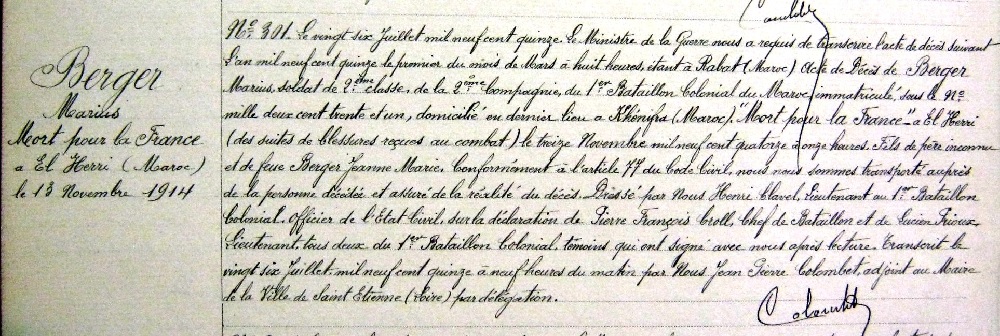 Berger
Marius
Mort pour la France
a El Herri (Maroc)
le 13 Novembre 1914
No 301. Le vingt six Juillet mil neuf cent quinze. Le Ministre de la Guerre nous a requis de transcrire l'acte de décès suivant
L'an mil neuf cent quinze le premier du mois de Mars à huit heures, étant à Rabat (Maroc) Acte de Décès de Berger
Marius, soldat de 2ème classe, de la 2ème Compagnie, du 1er Bataillon Colonial du Maroc, immatriculé, sous le No
mille deux cent trente et un, domicilié en dernier lieu a Khénifra (Maroc). "Mort pour la France" a El Herri
(des suites de blessures reçues au combat) le treize Novembre mil neuf cent quatorze à onze heures. Fils de père inconnu
et de feue Berger Jeanne Marie. Conformément à l'article 77 du Code Civil, nous nous sommes transporté auprès
de la personne décédée et assuré de la réalité du décès. Dressé par Nous Henri Clavel, Lieutenant au 1er Bataillon
Colonial. Officier de l'Etat Civil sur la déclaration de Pierre François Croll, Chef de Bataillon et de Lucien Prioux,
Lieutenant, tous deux du 1er Bataillon Colonial, témoins qui ont signé avec nous après lecture. Transcrit le
vingt six Juillet, mil neuf cent quinze à neuf heures du matin par Nous Jean Pierre Colombet, adjoint au Maire
de la Ville de Saint Etienne (Loire) par délégation.
Colombet